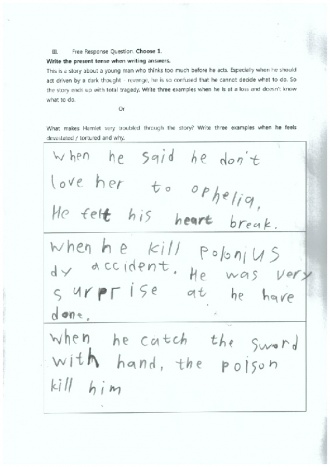 III. Free Response Question: Choose 1.
Write the present tense when writing answers.
This is a story about a young man who thinks too much before he acts. Especially when he should
act driven by a dark thought - revenge, he is so confused that he cannot decide what to do. So
the story ends up with total tragedy. Write three examples when he is at a loss and doesn't know
what to do.
Or
What makes Hamlet very troubled through the story? Write three examples when he feels
devastated / tortured and why.
when he said he don't
love her to ophelia,
He felt his heart break.
when he kill polonius
dy accident. He was very
surprise at he have
done.
when he catch the sword
with hand, the poison
kill him